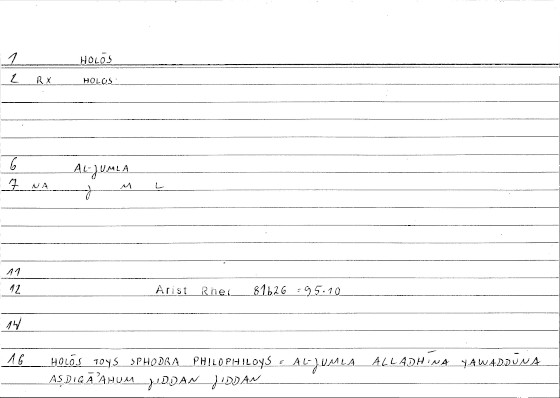 1 HOLŌS
2 RX HOLOS
6 AL-JUMLA
7 NA J M L
11
12 Arist Rhet 81b26 = 95.10
14
16 HOLŌS TOYS SPHODRA PHILOPHILOYS = AL-JUMLA ALLADHĪNA YAWADDŪNA
AṢDIQĀʾAHUM JIDDAN JIDDAN